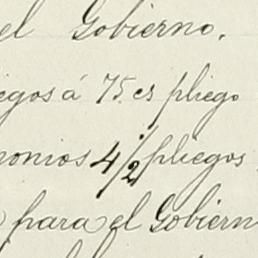 el Gobierno.
egos á 75. es pliego
onios 4 1/2 pliegos
para el Gobiern